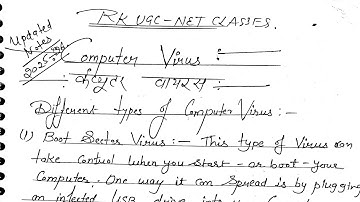 RK UGC-NET CLASSES.
Updated
Notes
2025
Computer Virus :-
: कंप्यूटर वायरस :
Different types of Computer Virus :-
(1) Boot Sector Virus :- This type of Virus can
take control when you start - or boot - your
Computer. One way it can Spread is by plugging
an infected USB drive into